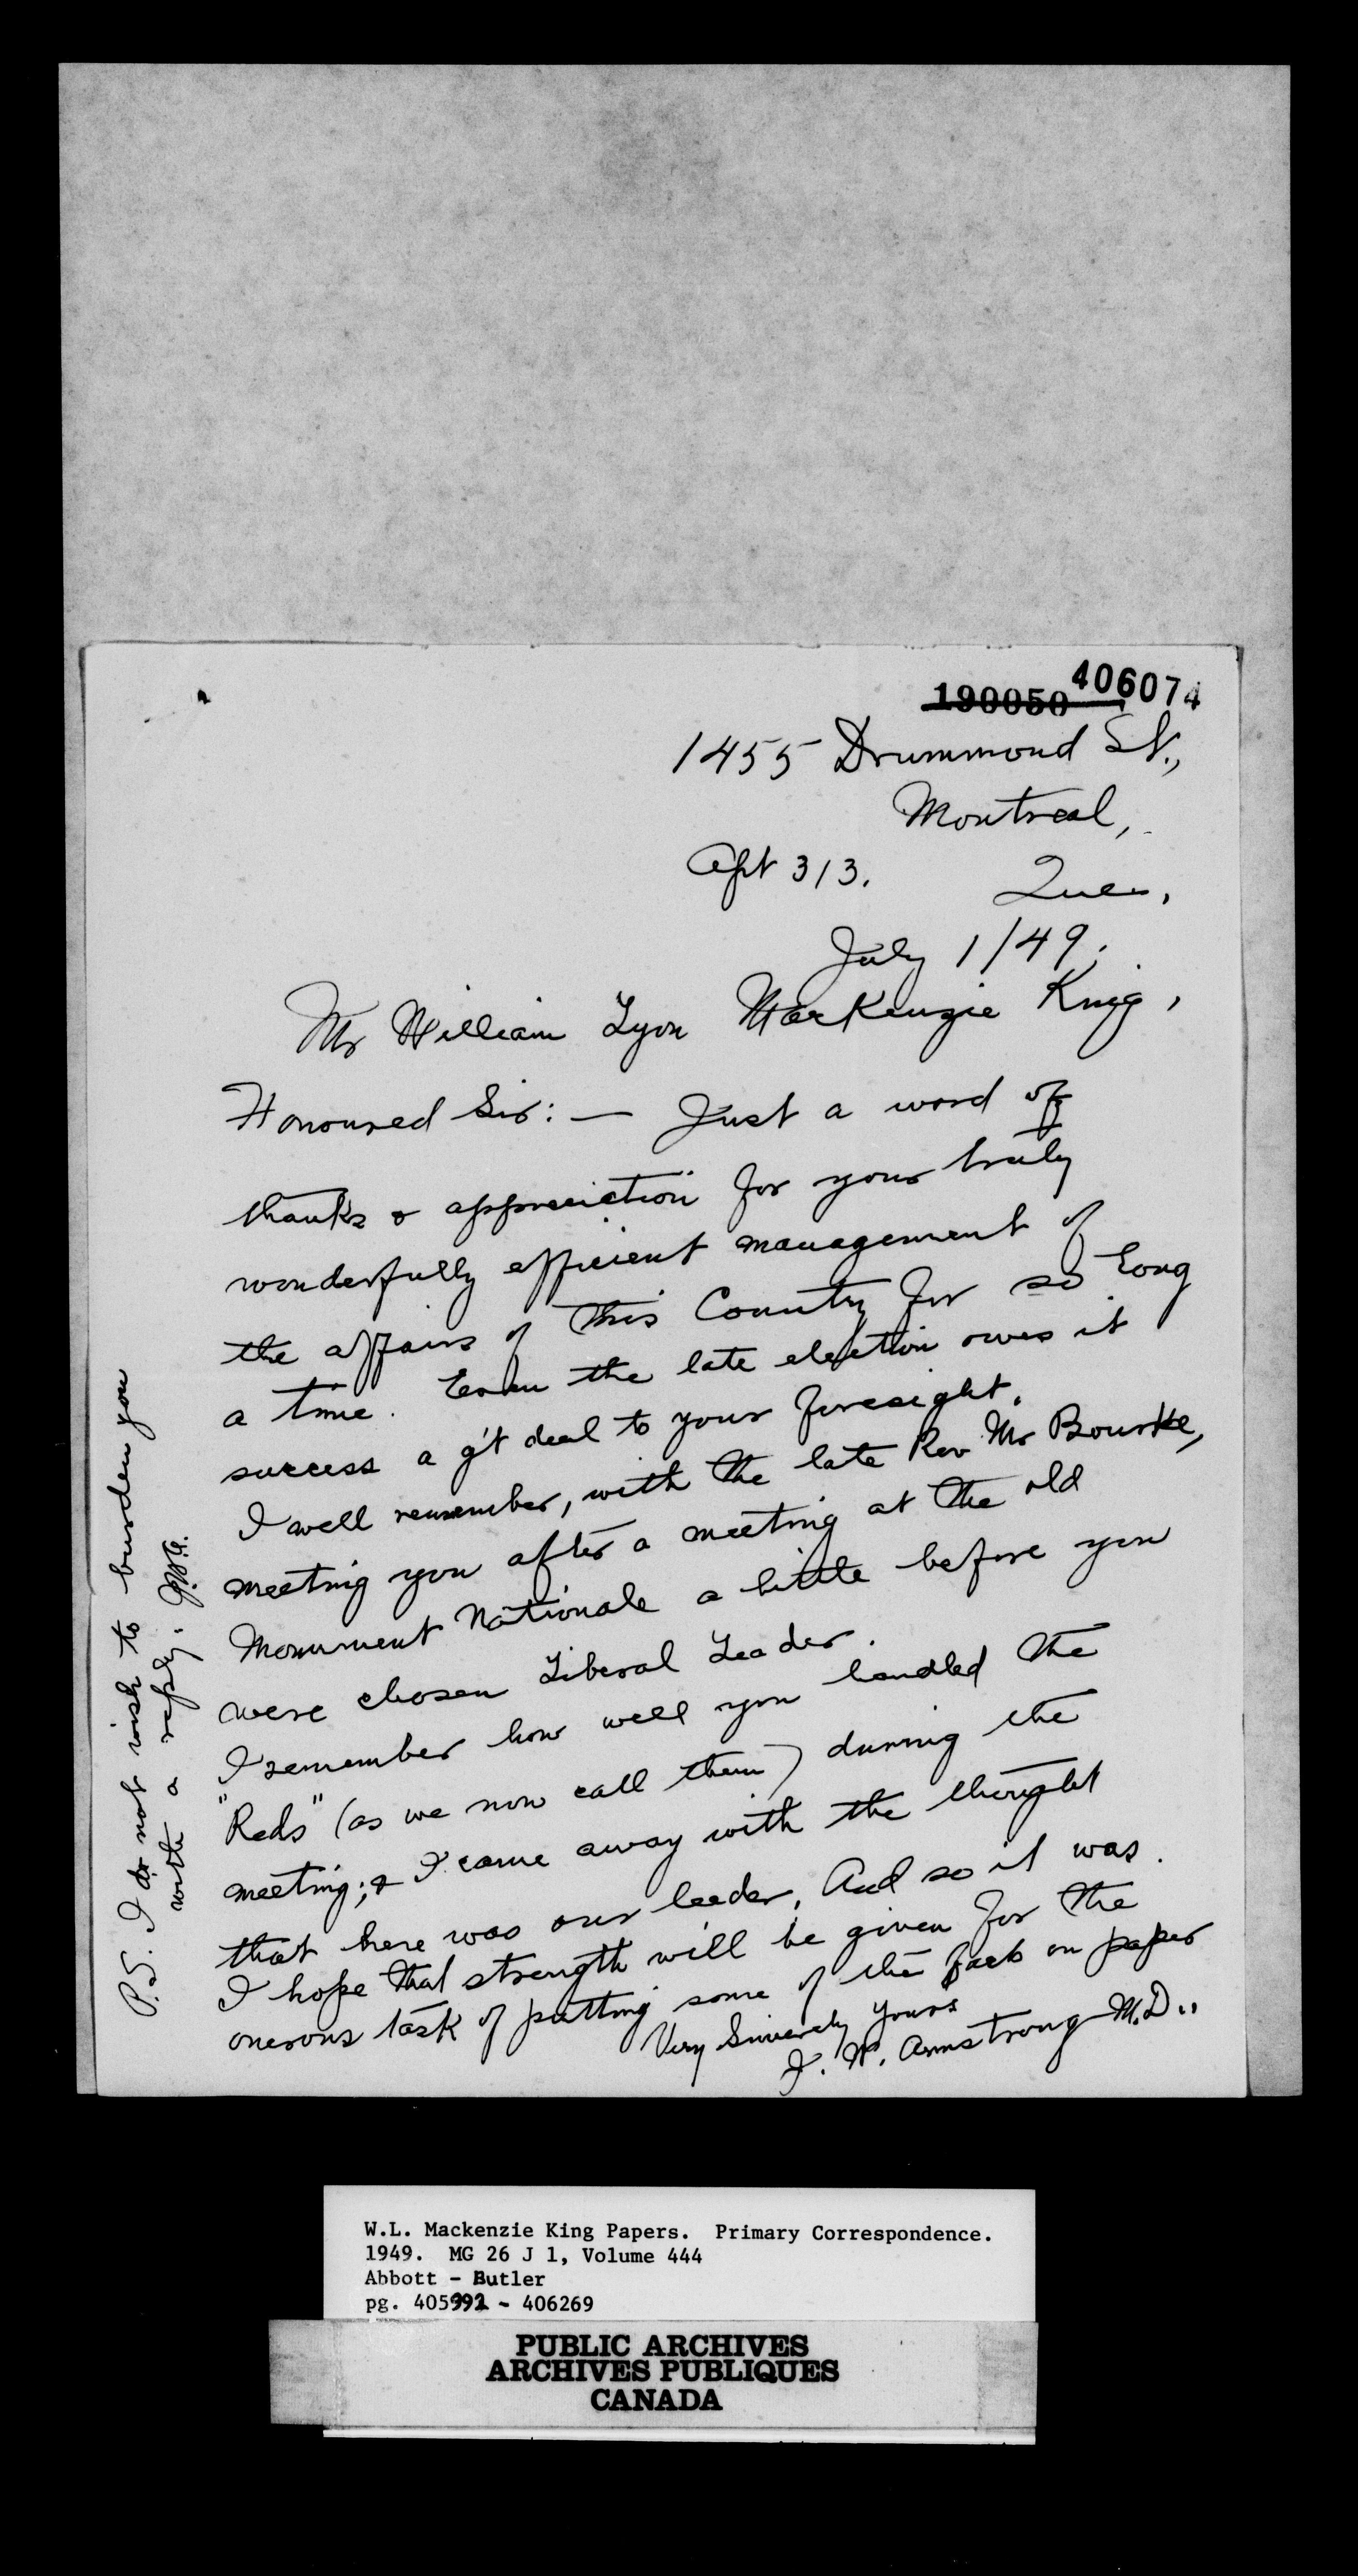 190050 406074
1455 Drummond St.,
Montreal,
Apt 313. Que.,
July 1/49.
Mr William Lyon MacKenzie King,
Honoured Sir: — Just a word of
thanks & appreciation for your truly
wonderfully efficient management of
the affairs of this Country for so long
a time. Even the late election owes it
success a g't deal to your foresight.
I well remember, with the late Rev Mr Bourke,
meeting you after a meeting at the old
Monument Nationale a little before you
were chosen Liberal Leader.
I remember how well you handled the
"Reds" (as we now call them) during the
meeting; & I came away with the thought
that here was our leader. And so it was.
I hope that strength will be given for the
onerous task of putting some of the facts on paper
Very Sincerely Yours
J. W. Armstrong M.D..
P.S. I do not wish to burden you
with a reply. J.W.A.
W.L. Mackenzie King Papers. Primary Correspondence.
1949. MG 26 J 1, Volume 444
Abbott - Butler
pg. 405992 - 406269
PUBLIC ARCHIVES
ARCHIVES PUBLIQUES
CANADA